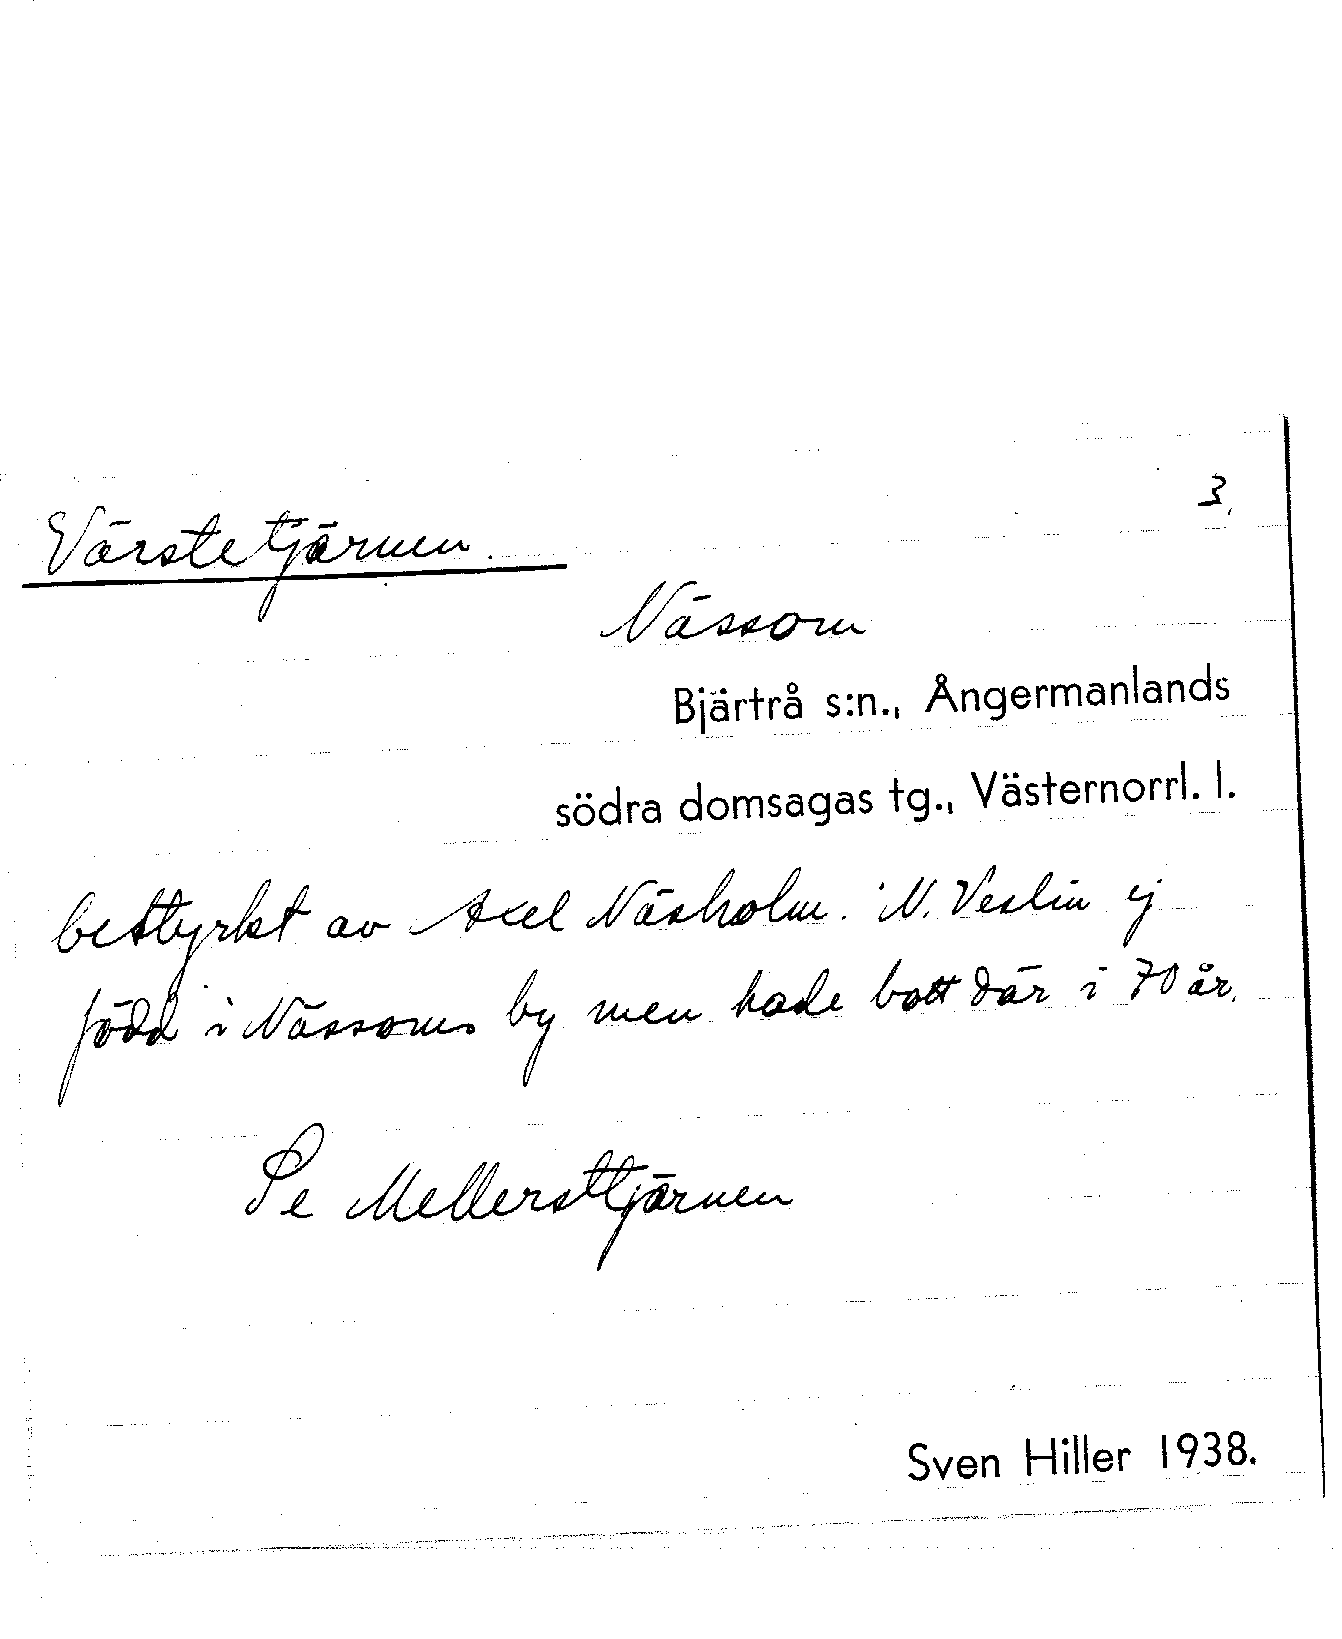 3.
Värstetjärnen.
Nässom
Bjärtrå s:n., Ångermanlands
södra domsagas tg., Västernorrl. l.
bestyrkt av Axel Näsholm. N. Veslin ej
född i Nässoms by men hade bott där i 70 år.
Se Mellersttjärnen
Sven Hiller 1938.